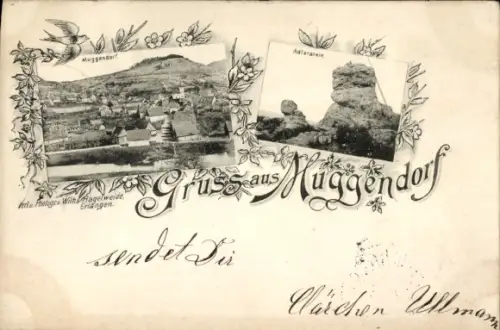 Muggendorf
Adlerstein
Gruss aus Muggendorf
Verl. v. Photogr. Wilh. Hagelweide,
Erlangen.
sendet Dir
Clärchen Ullmann